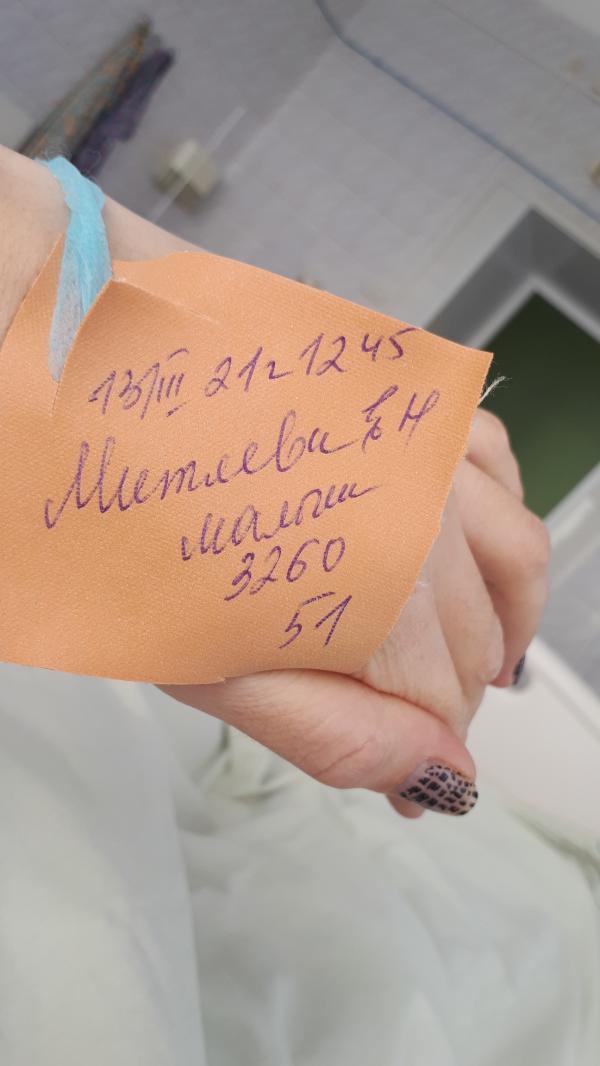 13/III 21г 12 45
Митяева Е Н
малыш
3260
51